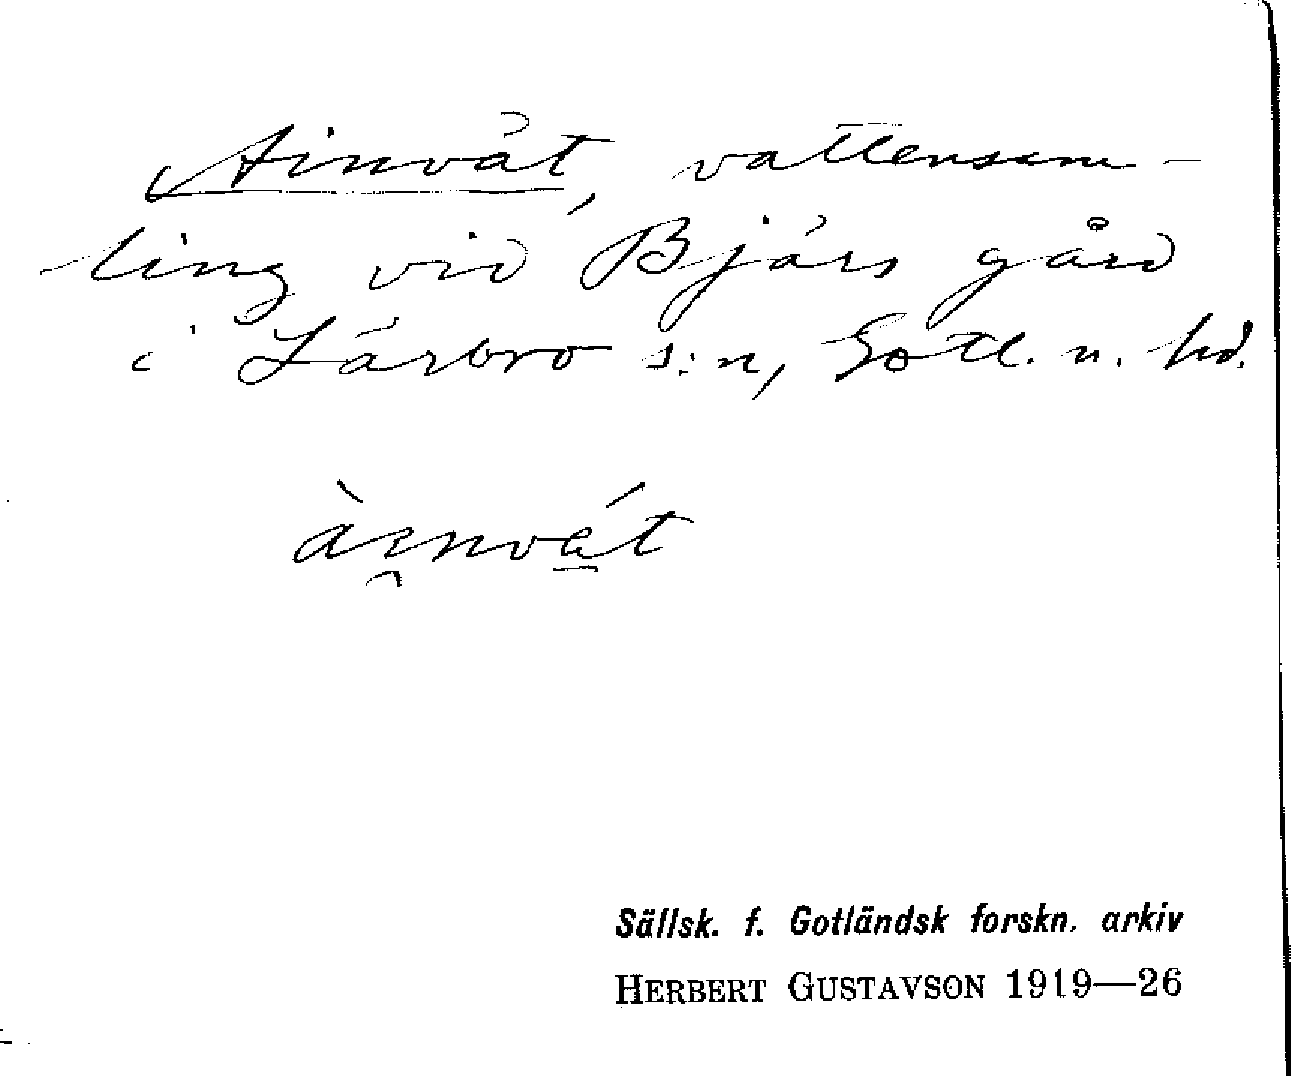 Ainvåt, vattensam-
ling vid Bjärs gård
i Lärbro s:n, Gotl. n. hd.
Sällsk. f. Gotländsk forskn. arkiv
HERBERT GUSTAVSON 1919—26